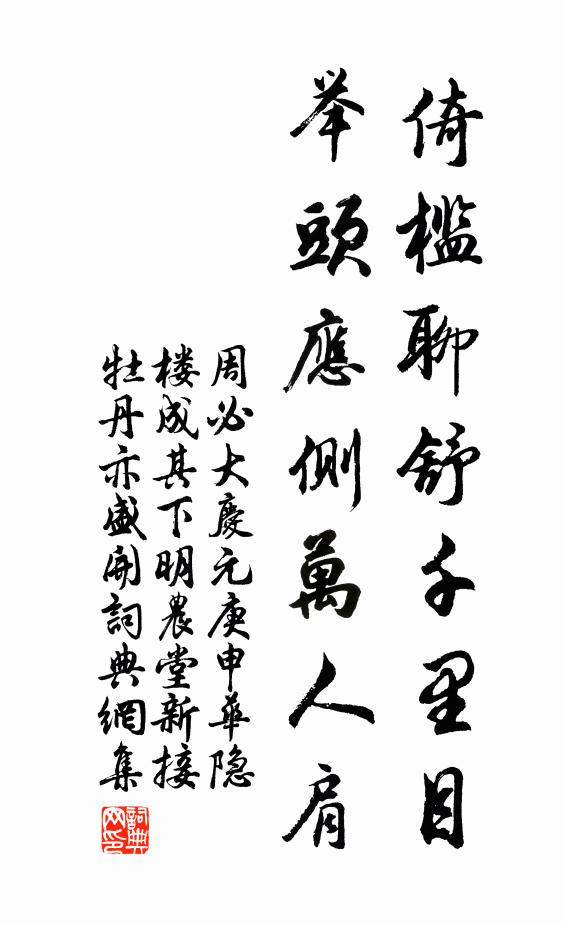 倚槛聊舒千里目
举頭應側萬人肩
周必大慶元庚申華隐
楼成其下明農堂新接
牡丹亦盛開詞典網集
詞典网印